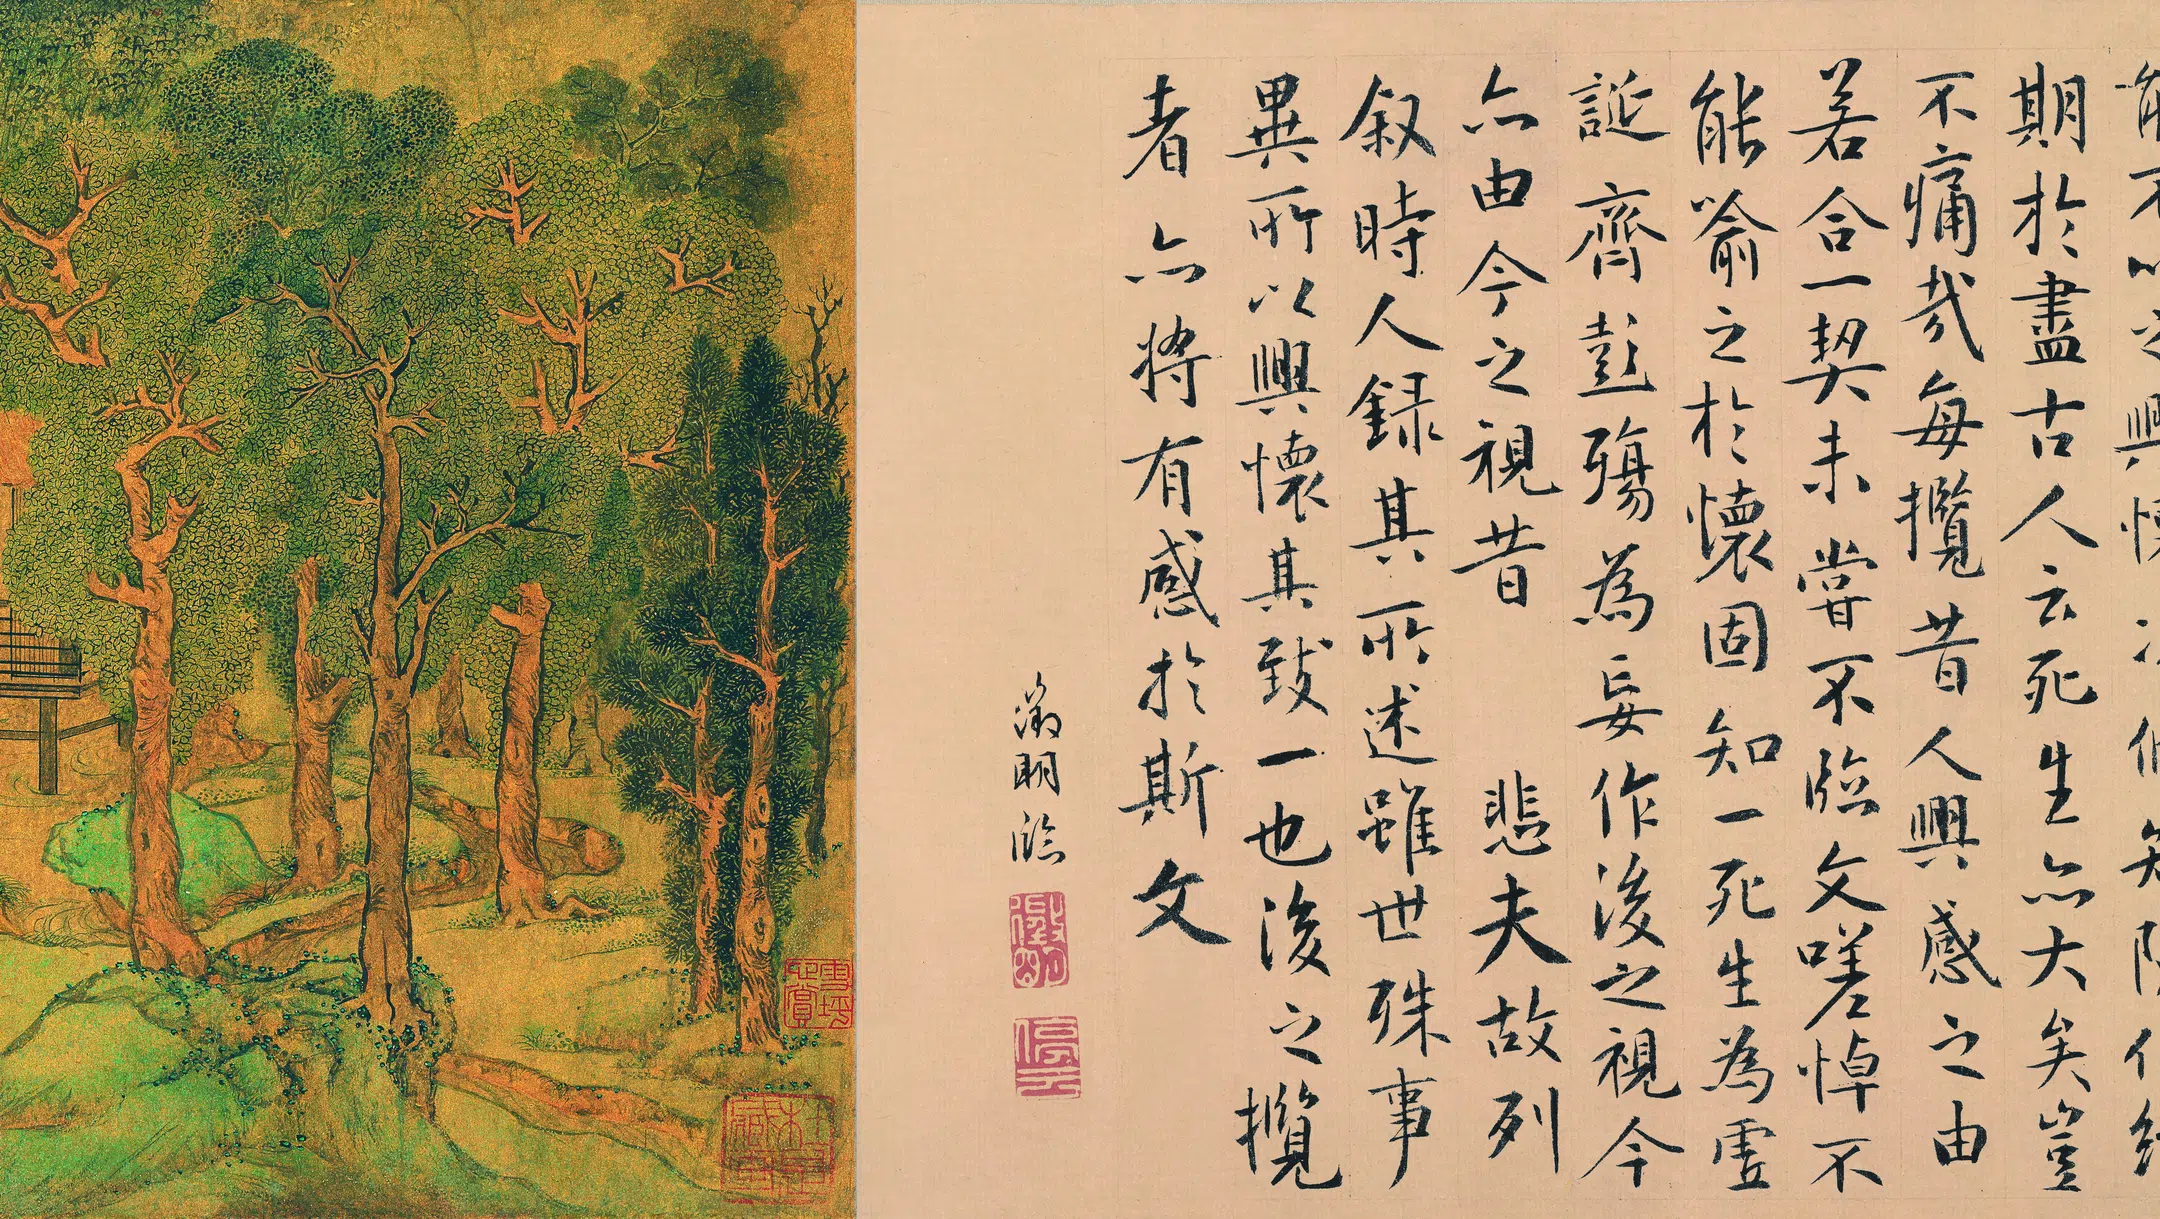 能不以之興懷况脩短隨化終
期於盡古人云死生亦大矣豈
不痛哉每攬昔人興感之由
若合一契未嘗不臨文嗟悼不
能喻之於懷固知一死生為虛
誕齊彭殤為妄作後之視今
亦由今之視昔 悲夫故列
叙時人録其所述雖世殊事
異所以興懷其致一也後之攬
者亦將有感於斯文
徵明臨
徵明
停雲